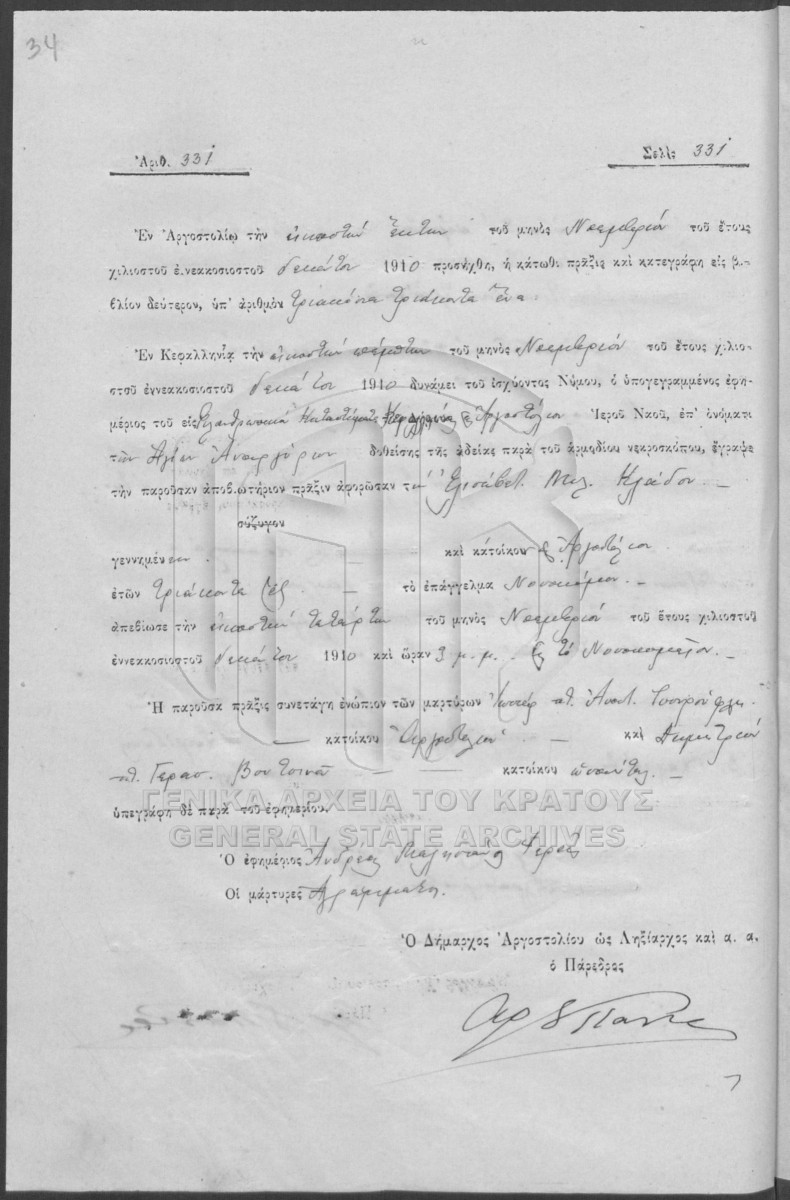 34
Ἀριθ. 331
Σελὶς 331
Ἐν Ἀργοστολίῳ τὴν εἰκοστὴν ἕκτην τοῦ μηνὸς Νοεμβρίου τοῦ ἔτους
χιλιοστοῦ ἐννεακοσιοστοῦ δεκάτου 1910 προσήχθη, ἡ κάτωθι πρᾶξις καὶ κατεγράφη εἰς βι-
βλίον δεύτερον, ὑπ' ἀριθμὸν τριακόσια τριάκοντα ἕνα.
Ἐν Κεφαλληνίᾳ τὴν εἰκοστὴν πέμπτην τοῦ μηνὸς Νοεμβρίου τοῦ ἔτους χιλιο-
στοῦ ἐννεακοσιοστοῦ δεκάτου 1910 δυνάμει τοῦ ἰσχύοντος Νόμου, ὁ ὑπογεγραμμένος ἐφη-
μέριος τοῦ εἰς Φιλανθρωπικὰ Καταστήματα Ἀργοστόλιον Ἱεροῦ Ναοῦ, ἐπ' ὀνόματι
τῶν Ἁγίων Ἀναργύρων δοθείσης τῆς ἀδείας παρὰ τοῦ ἁρμοδίου νεκροσκόπου, ἔγραψε
τὴν παροῦσαν ἀποβιωτήριον πρᾶξιν ἀφορῶσαν τὴν Ἐλισάβετ Κλάδου.
σύζυγον
γεννημένην καὶ κατοίκου Ἀργοστόλιον.
ἐτῶν τριάκοντα ἓξ τὸ ἐπάγγελμα Νοσοκόμου.
ἀπεβίωσε τὴν εἰκοστὴν τετάρτην τοῦ μηνὸς Νοεμβρίου τοῦ ἔτους χιλιοστοῦ
ἐννεακοσιοστοῦ δεκάτου 1910 καὶ ὥραν 3 μ.μ. εἰς τὸ Νοσοκομεῖον.
Ἡ παροῦσα πρᾶξις συνετάγη ἐνώπιον τῶν μαρτύρων
κατοίκου Ἀργοστολίου καὶ Δημητρίου
Γερασ. κατοίκου
ὑπεγράφη δὲ παρὰ τοῦ ἐφημερίου.
ΓΕΝΙΚΑ ΑΡΧΕΙΑ ΤΟΥ ΚΡΑΤΟΥΣ
GENERAL STATE ARCHIVES
Ὁ ἐφημέριος Ἀνδρέας Ἱερεὺς
Οἱ μάρτυρες Ἀγράμματοι.
Ὁ Δήμαρχος Ἀργοστολίου ὡς Ληξίαρχος καὶ α. α.
ὁ Πάρεδρος